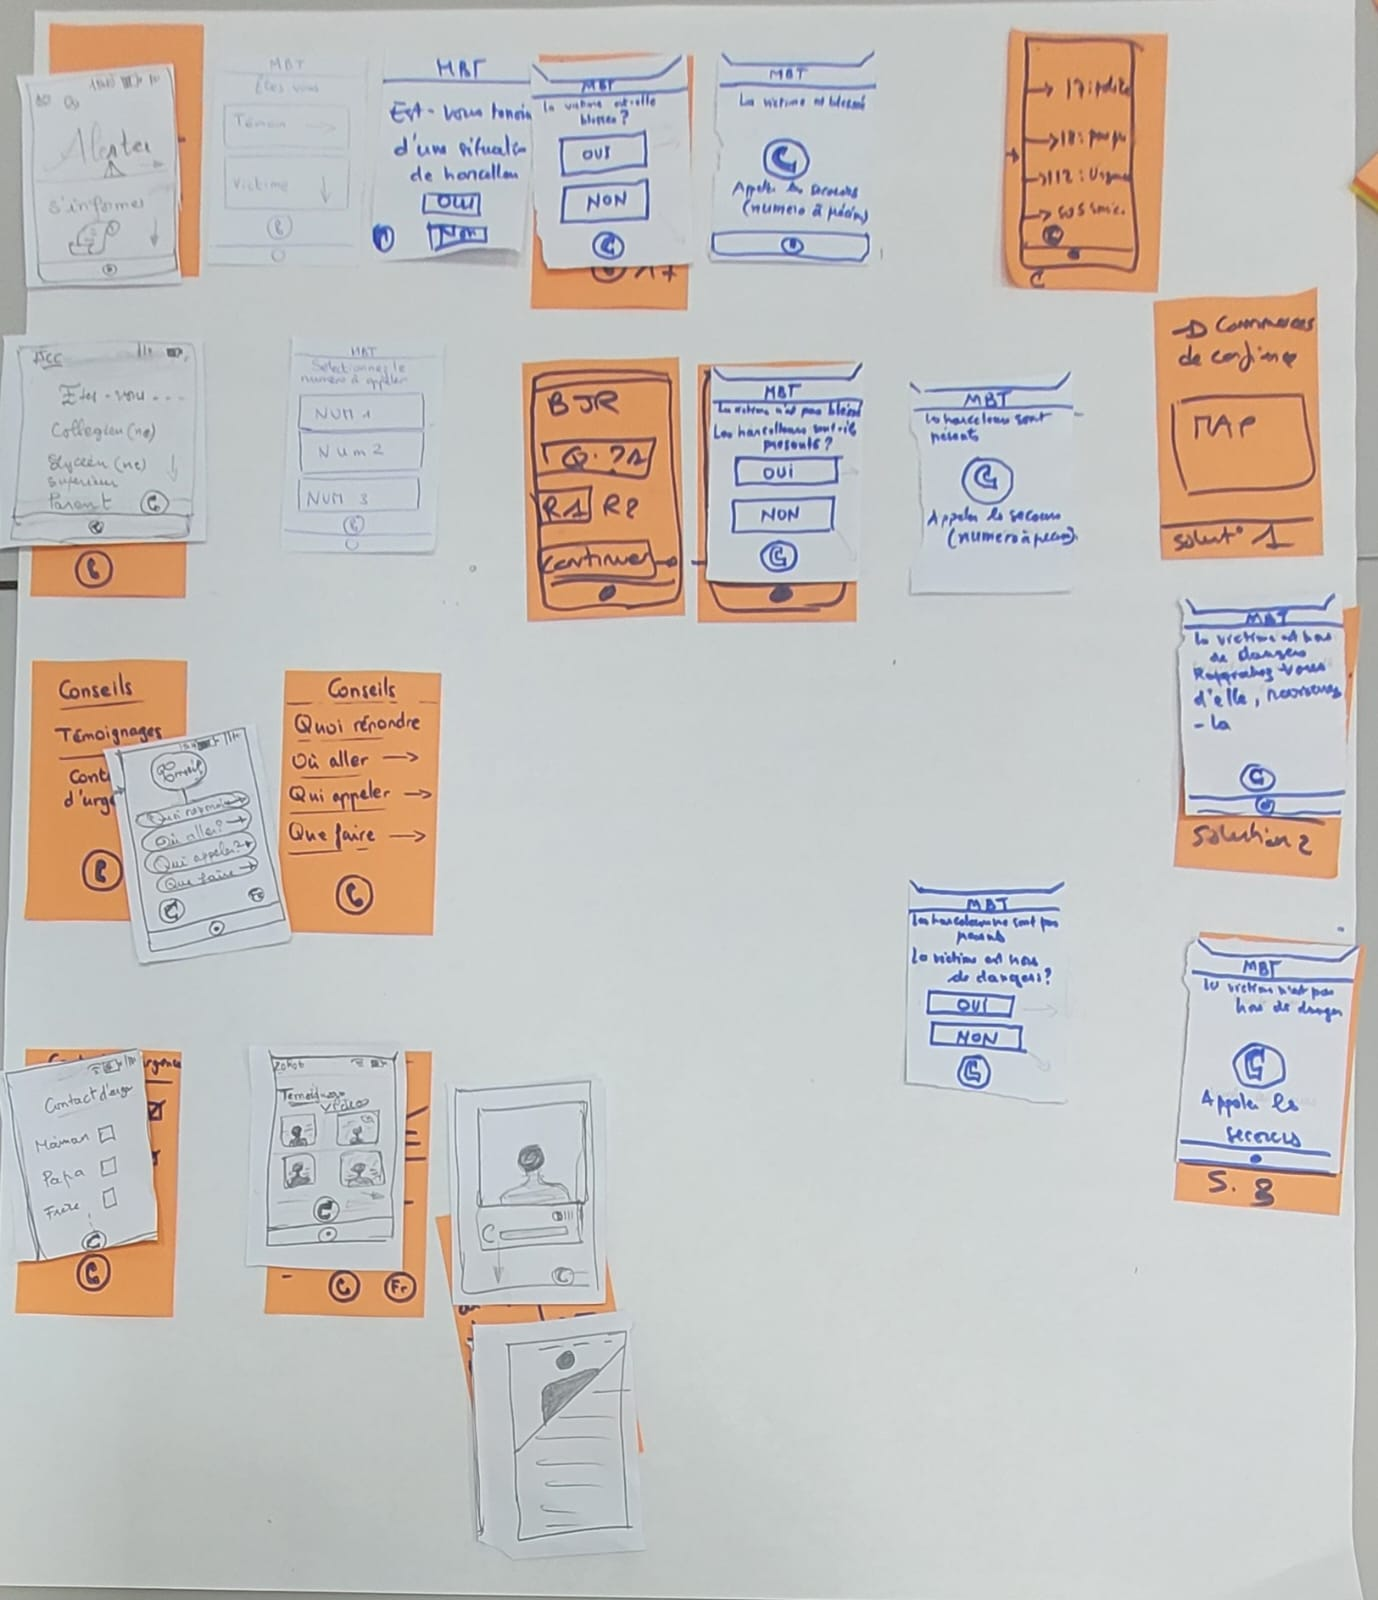 Alerter
S'informer
MBT
Êtes vous
Témoin
Victime
MBT
Est-vous temoin
d'une situation
de harcellem
OUI
Non
MBT
la victime est-elle
blessée ?
OUI
NON
MBT
La victime est blessé
Appeler les secours
(numero à préciser)
17 : police
18 : pompi
112 : Urgence
SOS
Êtes-vous ...
Collégien (ne)
Lycéen (ne)
Supérieur
Parent
MBT
Selectionnez le
numéro à appeler
NUM 1
NUM 2
NUM 3
BJR
Q. ?1
R1 R2
Continuer
MBT
La victime n'est pas blessé
Les harcelleurs sont-ils
presents ?
OUI
NON
MBT
Les harceleurs sont
présents
Appeler les secours
(numero à préciser)
Commerces
de confiance
MAP
Solut° 1
Conseils
Témoignages
Cont
d'urge
Où aller ?
Qui appeler ?
Que faire
Conseils
Quoi répondre
Où aller
Qui appeler
Que faire
MBT
la victime est hors
de dangers
Rapprochez vous
d'elle, rassurez
- la
Solution 2
MBT
Les harceleurs ne sont pas
présents
La victime est hors
de dangers ?
OUI
NON
MBT
la victime n'est pas
hors de danger
Appeler les
secours
S. 3
Contact d'urgen
Maman
Papa
Frère
Temoignage
vidéos
Fr